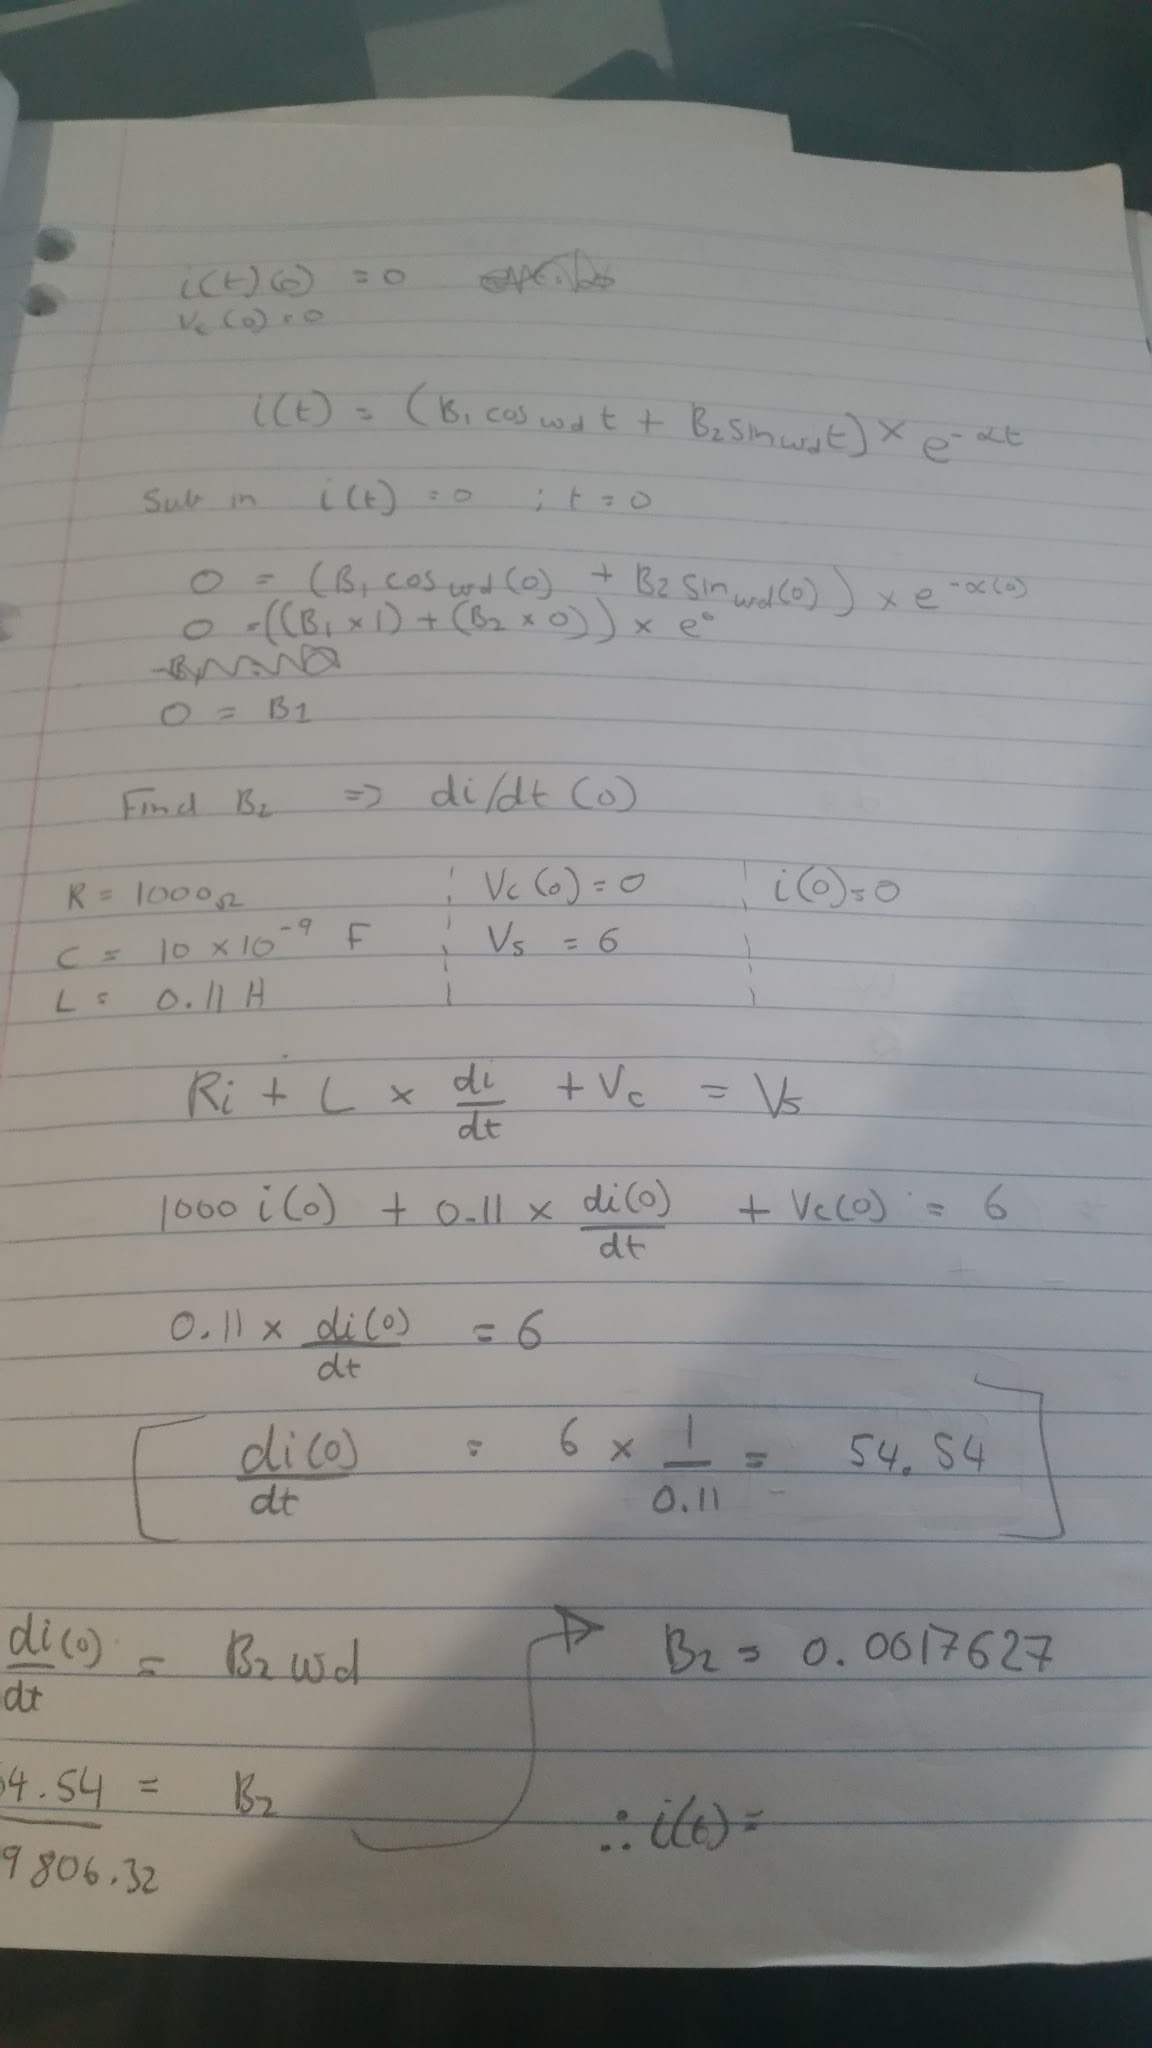 i(t)(0) = 0
Vc(0) = 0
i(t) = (B1 cos wd t + B2 sin wd t) × e^-αt
Sub in i(t) = 0 ; t = 0
0 = (B1 cos wd(0) + B2 sin wd(0)) × e^-α(0)
0 = ((B1 × 1) + (B2 × 0)) × e^0
0 = B1
Find B2 => di/dt (0)
R = 1000Ω Vc(0) = 0 i(0) = 0
C = 10 × 10^-9 F Vs = 6
L = 0.11 H
Ri + L × di/dt + Vc = Vs
1000 i(0) + 0.11 × di(0)/dt + Vc(0) = 6
0.11 × di(0)/dt = 6
di(0)/dt = 6 × 1/0.11 = 54.54
di(0)/dt = B2 wd
B2 = 0.0017627
4.54 / 9806.32 = B2
∴ i(t) =